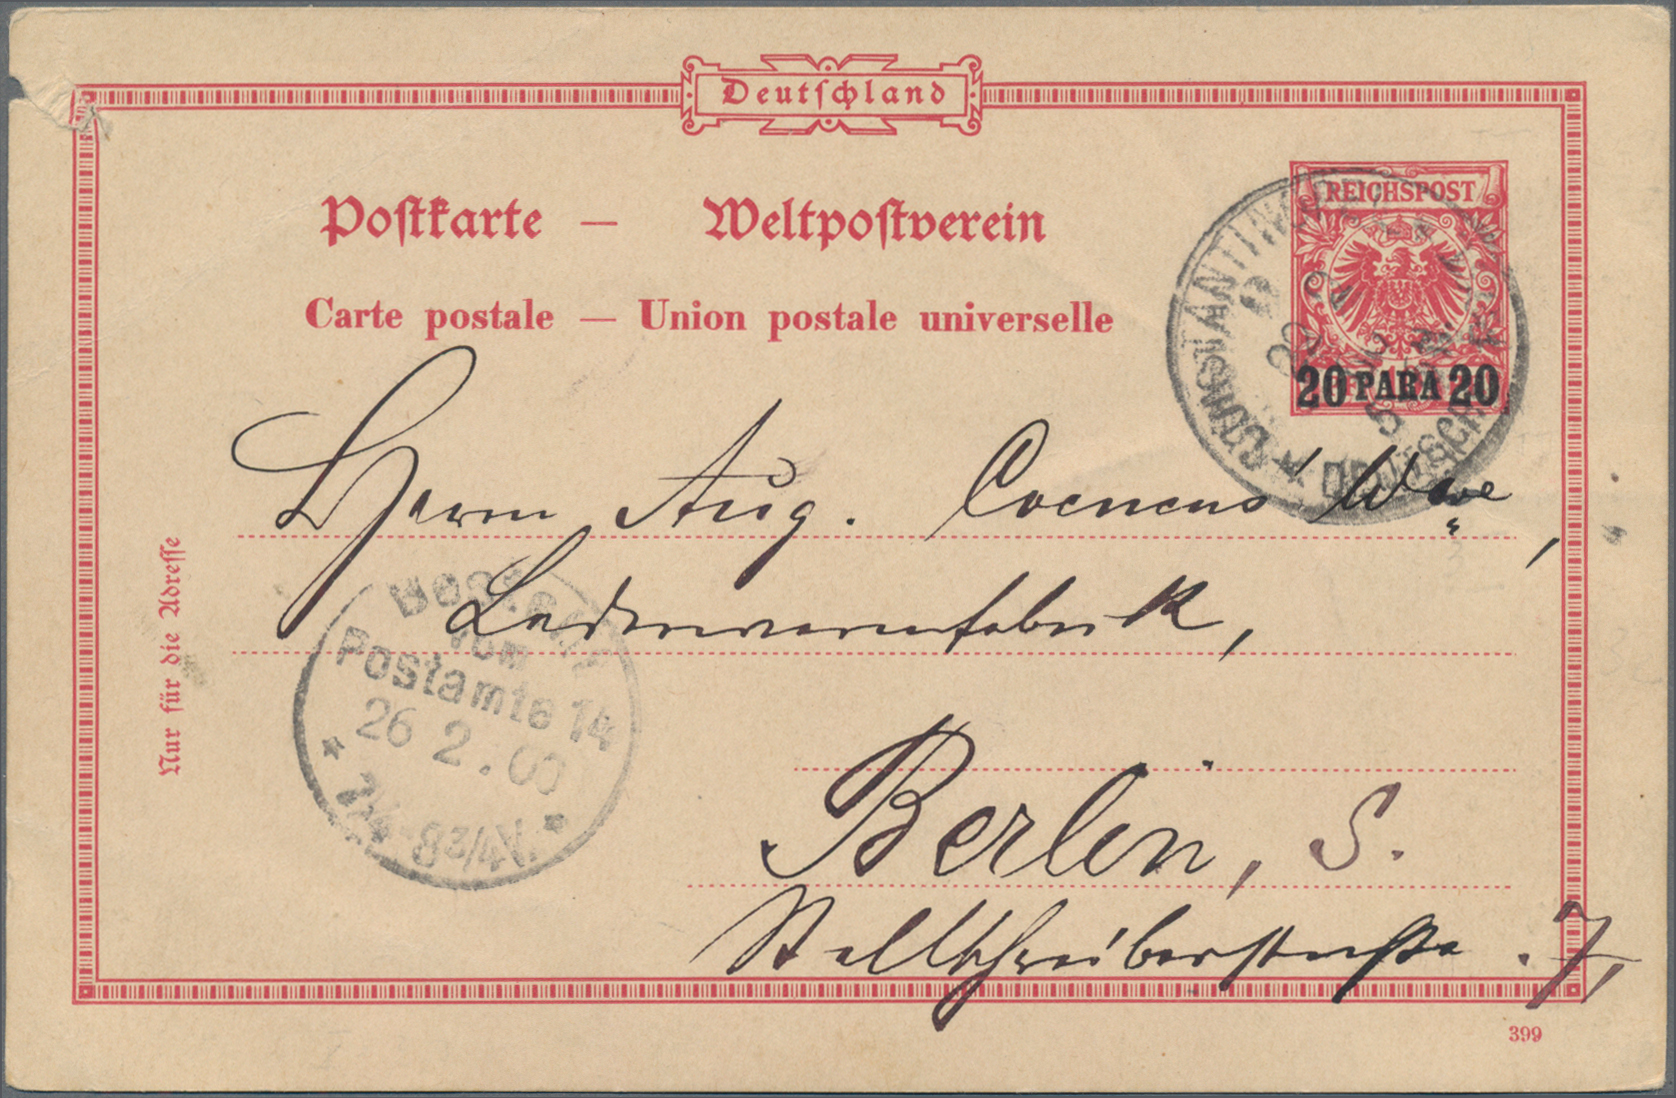 Deutschland
REICHSPOST
Postkarte — Weltpostverein
Carte postale — Union postale universelle
20 PARA 20
Herrn Aug. Coenens Wwe,
Lederwarenfabrik,
Berlin, S.
Stallschreiberstraße . 7,
Nur für die Adresse
Bestellt
vom
Postamte 14
26 2. 00
7½-8¾V.
399